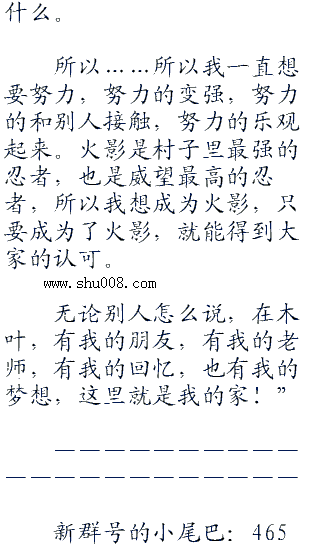 什么。
所以……所以我一直想
要努力，努力的变强，努力
的和别人接触，努力的乐观
起来。火影是村子里最强的
忍者，也是威望最高的忍
者，所以我想成为火影，只
要成为了火影，就能得到大
家的认可。
www.shu008.com
无论别人怎么说，在木
叶，有我的朋友，有我的老
师，有我的回忆，也有我的
梦想，这里就是我的家！”
——————————
————————————
新群号的小尾巴：465